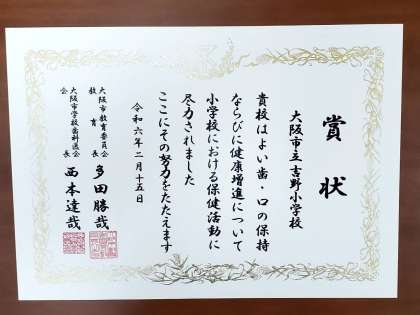 賞状
大阪市立吉野小学校
貴校はよい歯・口の保持
ならびに健康増進について
小学校における保健活動に
尽力されました
ここにその努力をたたえます
令和六年二月十五日
大阪市教育委員会
教育長 多田勝哉
大阪市学校歯科医会
会長 西本達哉